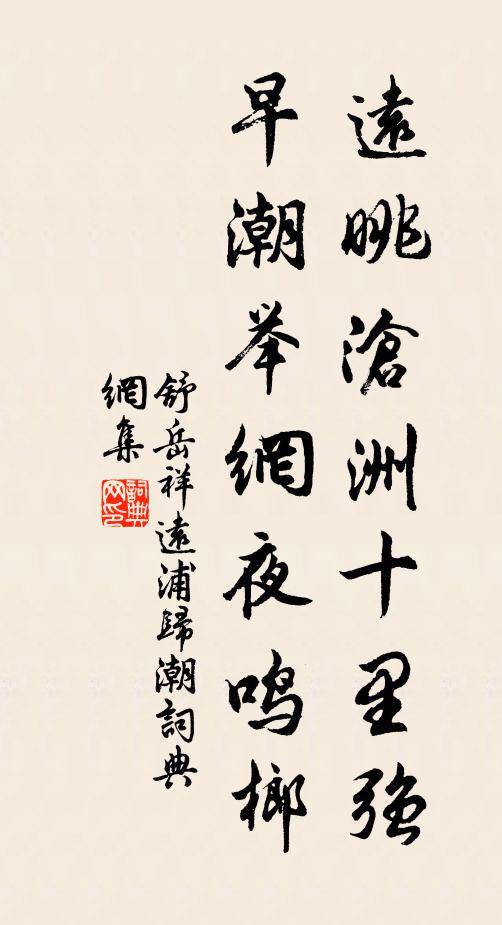 遠眺滄洲十里强
早潮举網夜鸣榔
舒岳祥遠浦歸潮詞典
網集
詞典
网印